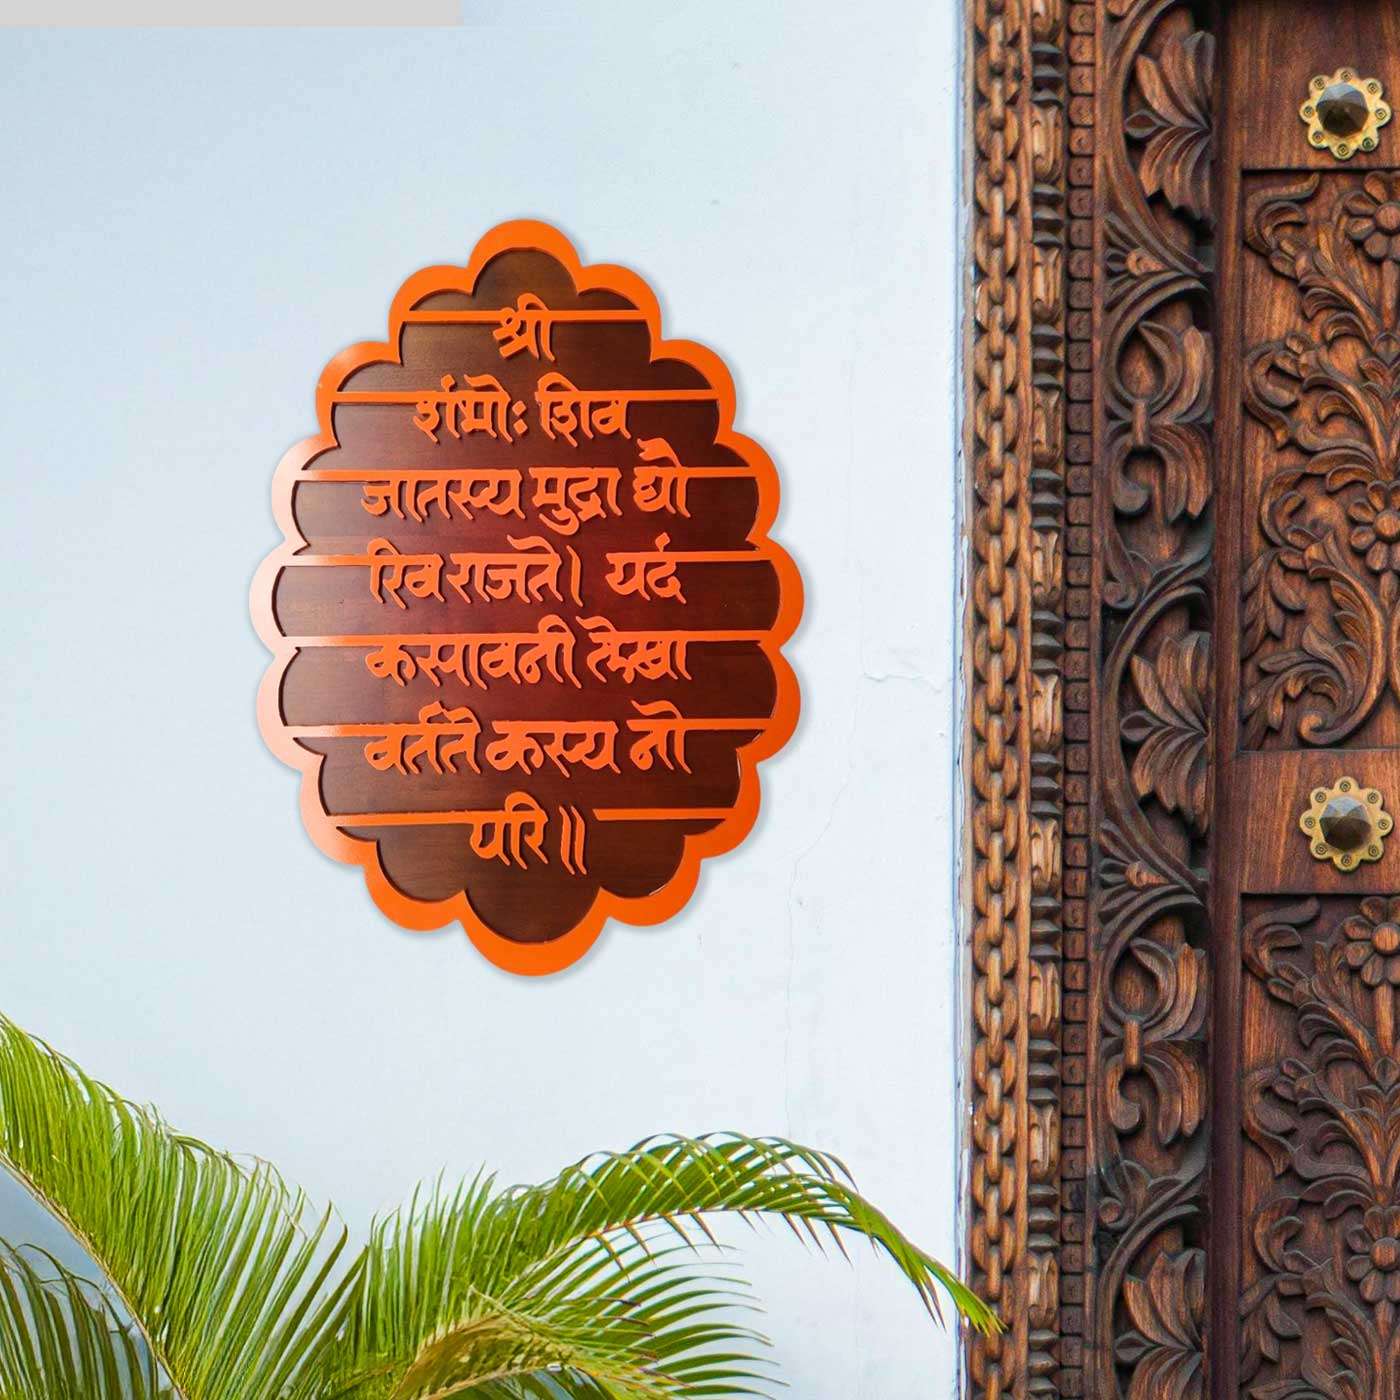 श्री
शंभोः शिव
जातस्य मुद्रा द्यौ
रिव राजते। यदं
कसावनी लेखा
वर्तते कस्य नो
परि॥